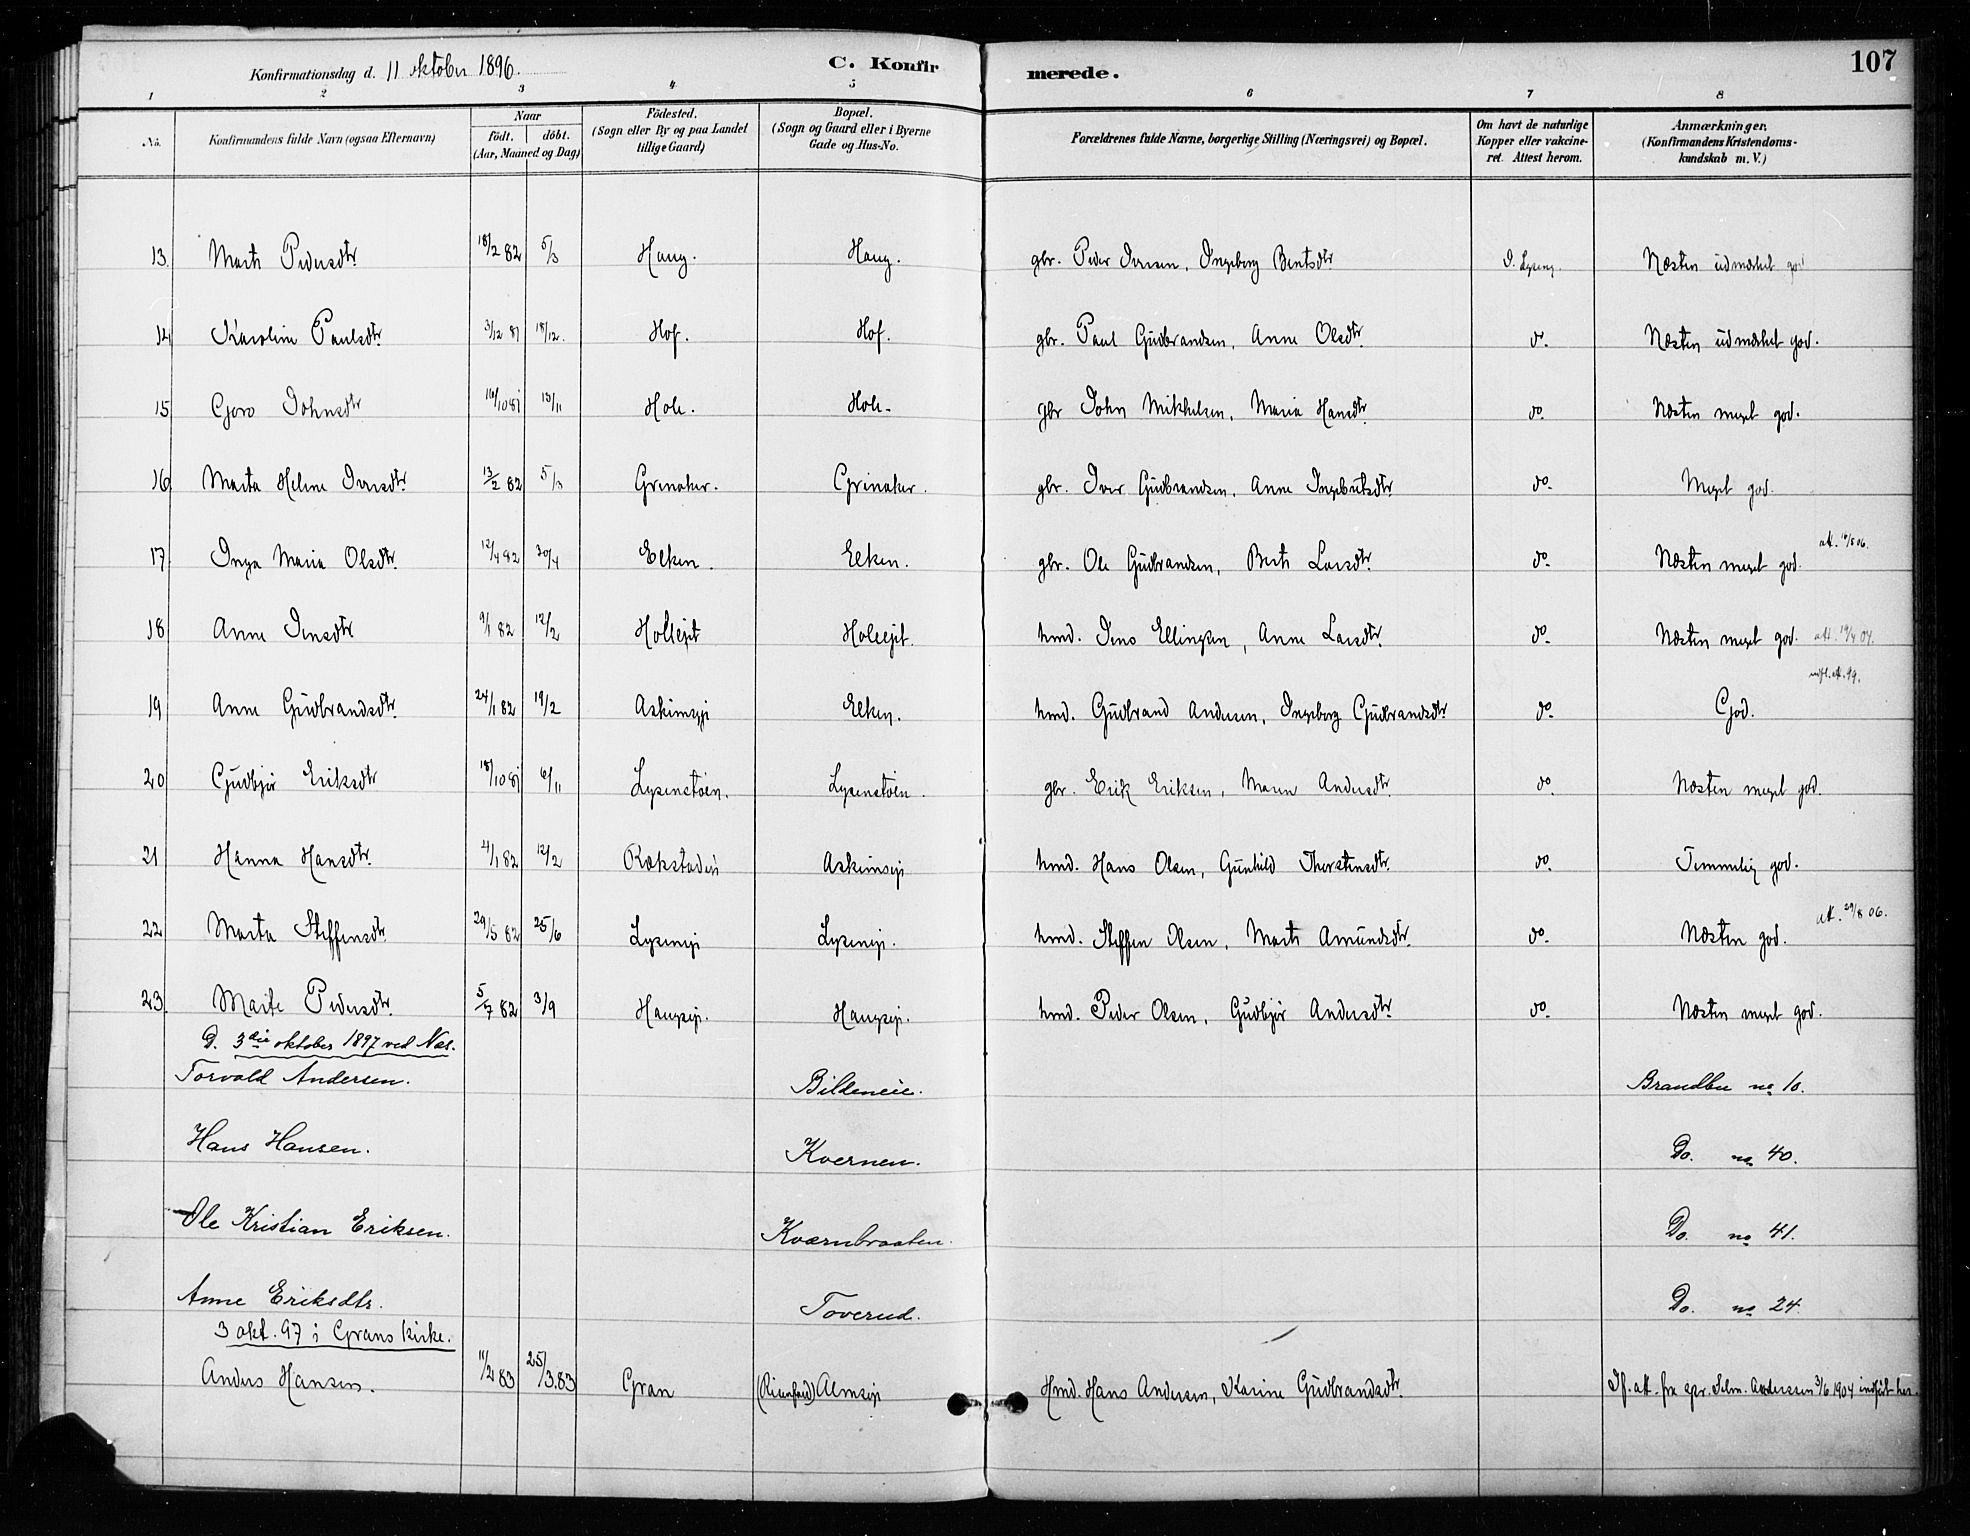 107
Konfirmationsdag d. 11 oktober 1896.
C. Konfirmerede.
1 2 3 4 5 6 7 8
No. Konfirmandens fulde Navn (ogsaa Efternavn) Naar födt. döbt. (Aar, Maaned og Dag) Födested. (Sogn eller By og paa Landet tillige Gaard) Bopæl. (Sogn og Gaard eller i Byerne Gade og Hus-No. Forældrenes fulde Navne, borgerlige Stilling (Næringsvei) og Bopæl. Om havt de naturlige Kopper eller vakcineret. Attest herom. Anmærkninger. (Konfirmandens Kristendomskundskab m. V.)
13. Marte Pedersdtr. 18/2 82 5/3 Haug. Haug. gbr. Peder Iversen, Ingeborg Berntsdtr I. Lyseng. Næsten udmærket god
14 Karoline Paulsdtr. 3/12 81 18/12. Hof. Hof. gbr. Paul Gudbrandsen, Anne Olsdtr. do. Næsten udmærket god.
15 Goro Johnsdtr 16/10 81 13/11 Hole. Hole. gbr John Mikkelsen, Maria Hansdtr. do. Næsten meget god.
16 Marta Helene Iversdtr. 13/2 82 5/3 Grinaker. Grinaker. gbr. Iver Gudbrandsen, Anne Ingebretsdtr. do. Meget god.
17 Inga Maria Olsdtr. 12/4 82 30/4 Elken. Elken. gbr. Ole Gudbrandsen, Berte Larsdtr. do. Næsten meget god. att. 16/5 06.
18 Anne Jensdtr 9/1 82 12/2 Holeejet Holeejet. hmd. Jens Ellingsen, Anne Larsdtr. do. Næsten meget god. att. 19/4 04.
19 Anne Gudbrandsdtr. 24/1 82 19/2 Askimsejr Elken. hmd. Gudbrand Andersen, Ingeborg Gudbrandsdtr. do. God. udfl. att. 99.
20 Gudbjør Eriksdtr 18/10 81 6/11 Lysenstøen. Lysenstøen. gbr. Erik Eriksen, Maren Andersdtr. do. Næsten meget god.
21 Hanna Hansdtr. 4/1 82 12/2 Rækstadeji Askimseje hmd. Hans Olsen, Gunhild Thorstensdtr. do. Temmelig god.
22 Marta Steffensdtr. 29/5 82 25/6 Lyseneje Lyseneje. hmd. Steffen Olsen, Marte Amundsdtr. do. Næsten god. att. 29/8 06.
23. Marte Pedersdtr. 5/7 82 3/9 Haugseje. Haugseje. hmd. Peder Olsen, Gudbjør Andersdtr. do. Næsten meget god.
D. 3die oktober 1897 ved Næs.
Torvald Andersen. Bildeneie. Brandbu no 10.
Hans Hansen. Kvernen. Do. no 40.
Ole Kristian Eriksen. Kværnbraaten. Do. no 41.
Anne Eriksdtr. Toverud. Do. no 24.
3 okt. 97 i Grans kirke.
Anders Hansen. 11/2 83 25/3.83 Gran Almseje Hmd. Hans Andersen, Karine Gudbrandsdtr. If. att. fra spr. Selm. Anderssen 3/6 1904 indført her.